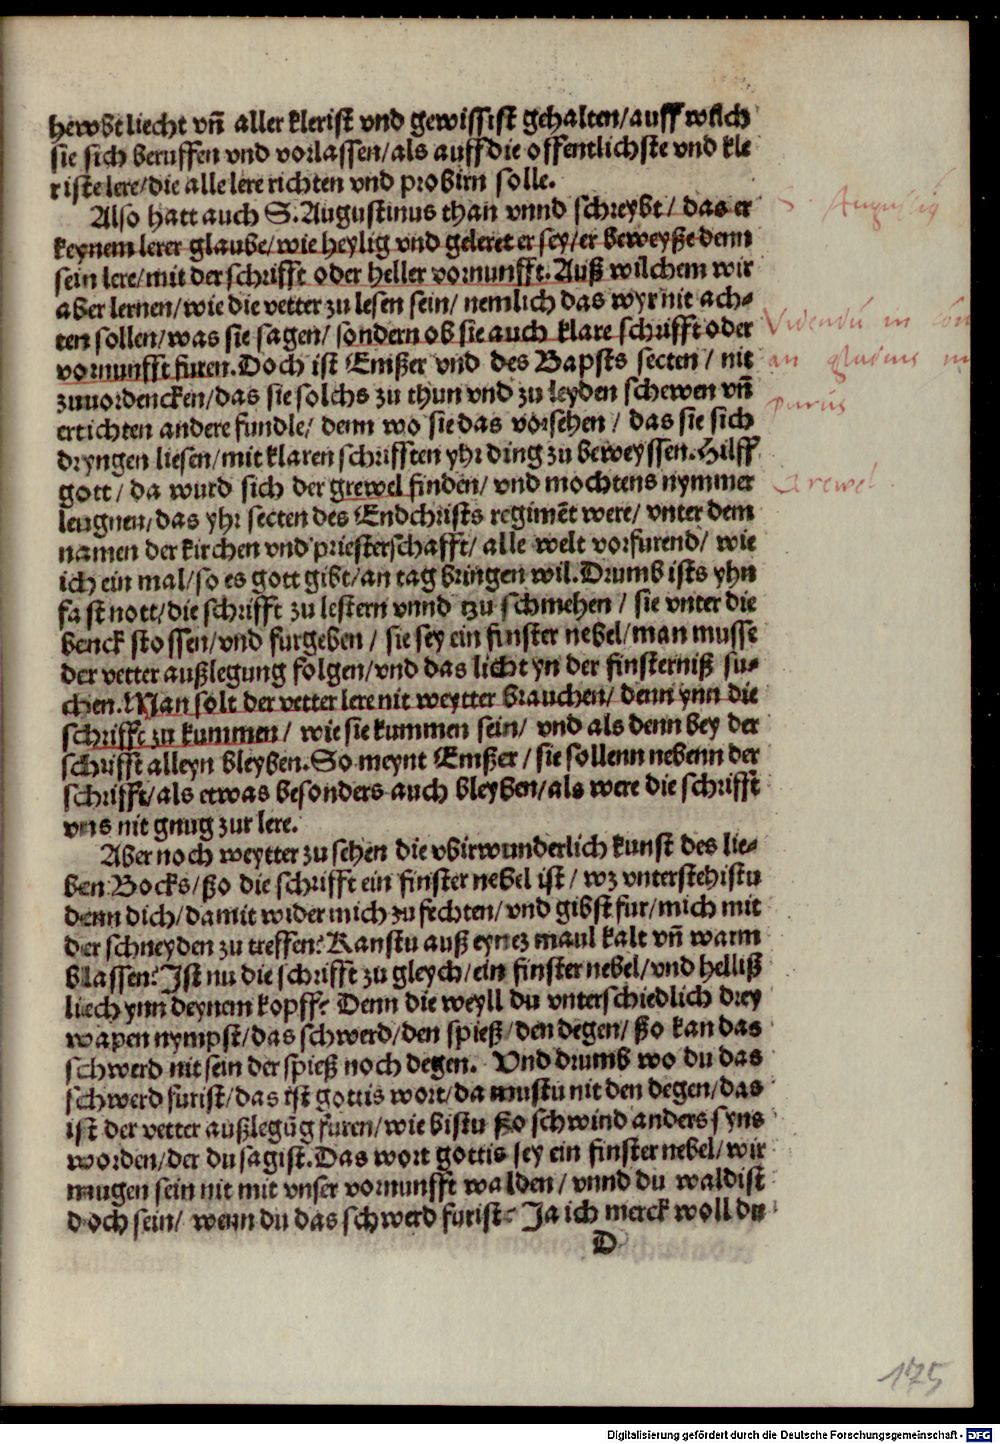 hewbt liecht vñ aller klerist vnd gewissist gehalten/ auff wilch
sie sich beruffen vnd vorlassen/ als auff die offentlichste vnd kle
riste lere/ die alle lere richten vnd probirn solle.
Also hatt auch S. Augustinus than vnnd schreybt/ das er
keynem lerer glaube/ wie heylig vnd geleret er sey/ er beweyße denn
sein lere/ mit der schrifft oder heller vornunfft. Auß wilchem wir
aber lernen/ wie die vetter zu lesen sein/ nemlich das wyr nit ach-
ten sollen/ was sie sagen/ sondern ob sie auch klare schrifft oder
vornunfft furen. Doch ist Emßer vnd des Bapsts secten/ nit
zuuordencken/ das sie solchs zu thun vnd zu leyden schewen vñ
ertichten andere fundle/ denn wo sie das vorsehen/ das sie sich
dryngen liesen/ mit klaren schrifften yhr ding zu beweyssen. Hilff
gott/ da wurd sich der grewel finden/ vnd mochtens nymmer
leugnen/ das yhr secten des Endchrists regimēt were/ vnter dem
namen der kirchen vnd priesterschafft/ alle welt vorfurend/ wie
ich ein mal/ so es gott gibt/ an tag bringen wil. Drumb ists yhn
fast nott/ die schrifft zu lestern vnnd tzu schmehen/ sie vnter die
benck stossen/ vnd furgeben/ sie sey ein finster nebel/ man musse
der vetter außlegung folgen/ vnd das licht yn der finsterniß su-
chen. Man solt der vetter lere nit weytter brauchen/ denn ynn die
schrifft zu kummen/ wie sie kummen sein/ vnd als denn bey der
schrifft alleyn bleyben. So meynt Emßer/ sie sollenn nebenn der
schrifft/ als etwas besonders auch bleyben/ als were die schrifft
vns nit gnug zur lere.
Aber noch weytter zu sehen die vbirwunderlich kunst des lie-
ben Bocks/ ßo die schrifft ein finster nebel ist/ wz vnterstehistu
denn dich/ damit wider mich zu fechten/ vnd gibst fur/ mich mit
der schneyden zu treffen? Kanstu auß eynez maul kalt vñ warm
blassen? Ist nu die schrifft zu gleych/ ein finster nebel/ vnd helliß
liech ynn deynem kopff? Denn die weyll du vnterschiedlich drey
wapen nympst/ das schwerd/ den spieß/ den degen/ ßo kan das
schwerd nit sein der spieß noch degen. Vnd drumb wo du das
schwerd furist/ das ist gottis wort/ da mustu nit den degen/ das
ist der vetter außlegūg furen/ wie bistu ßo schwind anders syns
worden/ der du sagist. Das wort gottis sey ein finster nebel/ wir
mugen sein nit mit vnser vornunfft walden/ vnnd du waldist
doch sein/ wenn du das schwerd furist? Ja ich merck woll du
D
S. Augustiq
Videndū in
an gladius
purus
Grewel.
175
Digitalisierung gefördert durch die Deutsche Forschungsgemeinschaft - DFG